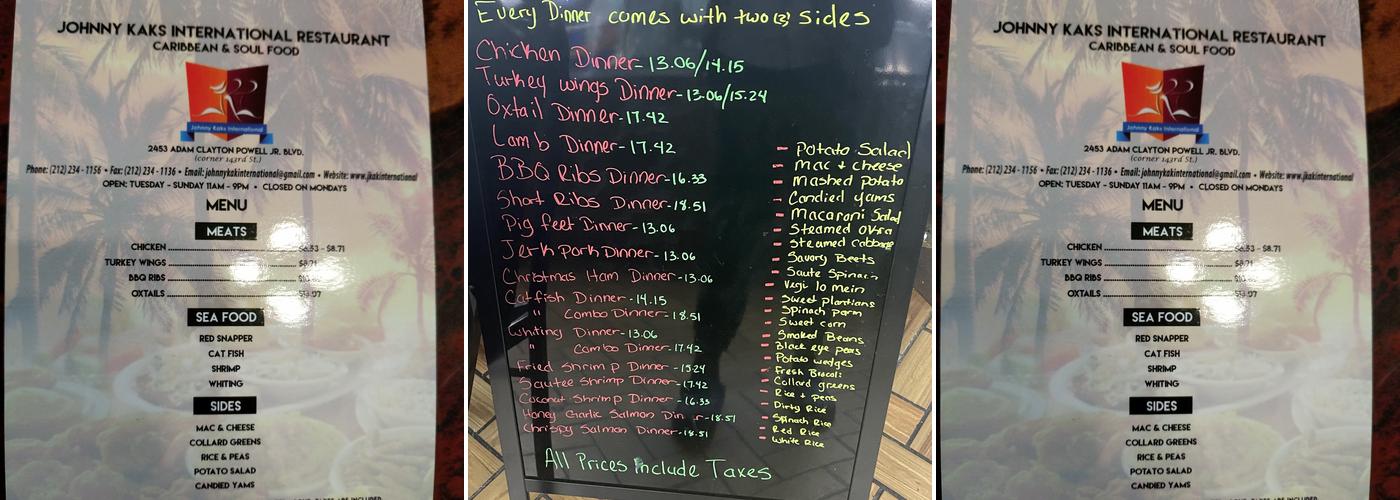 JOHNNY KAKS INTERNATIONAL RESTAURANT
CARIBBEAN & SOUL FOOD
Johnny Kaks International
2453 ADAM CLAYTON POWELL JR. BLVD.
(corner 143rd St.)
Phone: (212) 234 - 1156 • Fax: (212) 234 - 1136 • Email: johnnykakinternational@gmail.com • Website: www.jkakinternational
OPEN: TUESDAY - SUNDAY 11AM - 9PM • CLOSED ON MONDAYS
MENU
MEATS
CHICKEN - $8.71
TURKEY WINGS $8.71
BBQ RIBS
OXTAILS
SEA FOOD
RED SNAPPER
CAT FISH
SHRIMP
WHITING
SIDES
MAC & CHEESE
COLLARD GREENS
RICE & PEAS
POTATO SALAD
CANDIED YAMS
Every Dinner comes with two (2) sides
Chicken Dinner - 13.06/14.15
Turkey wings Dinner - 13.06/15.24
Oxtail Dinner - 17.42
Lamb Dinner - 17.42
BBQ Ribs Dinner - 16.33
Short Ribs Dinner - 18.51
Pig feet Dinner - 13.06
Jerk Pork Dinner - 13.06
Christmas Ham Dinner - 13.06
Catfish Dinner - 14.15
" Combo Dinner - 18.51
Whiting Dinner - 13.06
" Combo Dinner - 17.42
Fried Shrimp Dinner - 15.24
Sautee Shrimp Dinner - 17.42
Coconut Shrimp Dinner - 16.33
Honey Garlic Salmon Dinner - 18.51
Chrispy Salmon Dinner - 18.51
- Potato Salad
- Mac + cheese
- Mashed potato
- Candied yams
- Macaroni Salad
- Steamed okra
- Steamed cabbage
- Savory Beets
- Saute Spinach
- Vegi lo mein
- Sweet plantians
- Spinach parm
- Sweet corn
- Smoked Beans
- Black eye peas
- Potato wedges
- Fresh Brocoli
- Collard greens
- Rice + peas
- Dirty Rice
- Spinach Rice
- Red Rice
- White Rice
All Prices Include Taxes
JOHNNY KAKS INTERNATIONAL RESTAURANT
CARIBBEAN & SOUL FOOD
Johnny Kaks International
2453 ADAM CLAYTON POWELL JR. BLVD.
(corner 143rd St.)
Phone: (212) 234 - 1156 • Fax: (212) 234 - 1136 • Email: johnnykakinternational@gmail.com • Website: www.jkakinternational
OPEN: TUESDAY - SUNDAY 11AM - 9PM • CLOSED ON MONDAYS
MENU
MEATS
CHICKEN - $8.71
TURKEY WINGS $8.71
BBQ RIBS
OXTAILS
SEA FOOD
RED SNAPPER
CAT FISH
SHRIMP
WHITING
SIDES
MAC & CHEESE
COLLARD GREENS
RICE & PEAS
POTATO SALAD
CANDIED YAMS